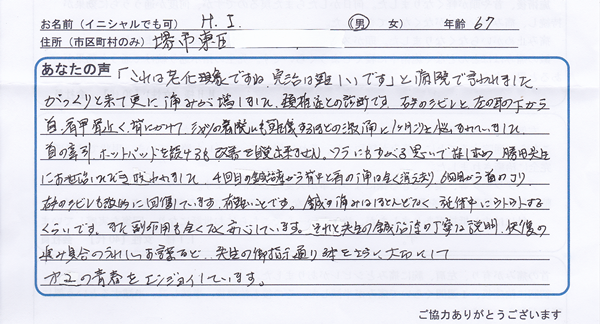 お名前（イニシャルでも可） H.I. 男 女） 年齢 67
住所（市区町村のみ） 堺市東区
あなたの声 「これは老化現象ですね、完治は難しいです」と病院で言われました
がっくりと来て更に痛みが増しました、頚椎症との診断です 右手のシビレと、左の耳の下から
首、肩甲骨近く、背にかけて の激痛に1ケ月ほど悩まされていました
首の牽引、ホットパッドを続けるも改善を せません。ワラにもすがる思いで 勝田先生
にお世話いただき 4回目の鍼治療から背中と首の痛は全く消え去り、6回目から首のコリ、
右手のシビレも 回復しています、有難いことです。鍼の痛みはほとんどなく、施術中にウトウトする
くらいです。また副作用も全くなく安心しています。それと先生の鍼治療の丁寧な説明、快復の
具合のうれしいお言葉など、先生の御指示通り 大切にして
青春をエンジョイしています。
ご協力ありがとうございます